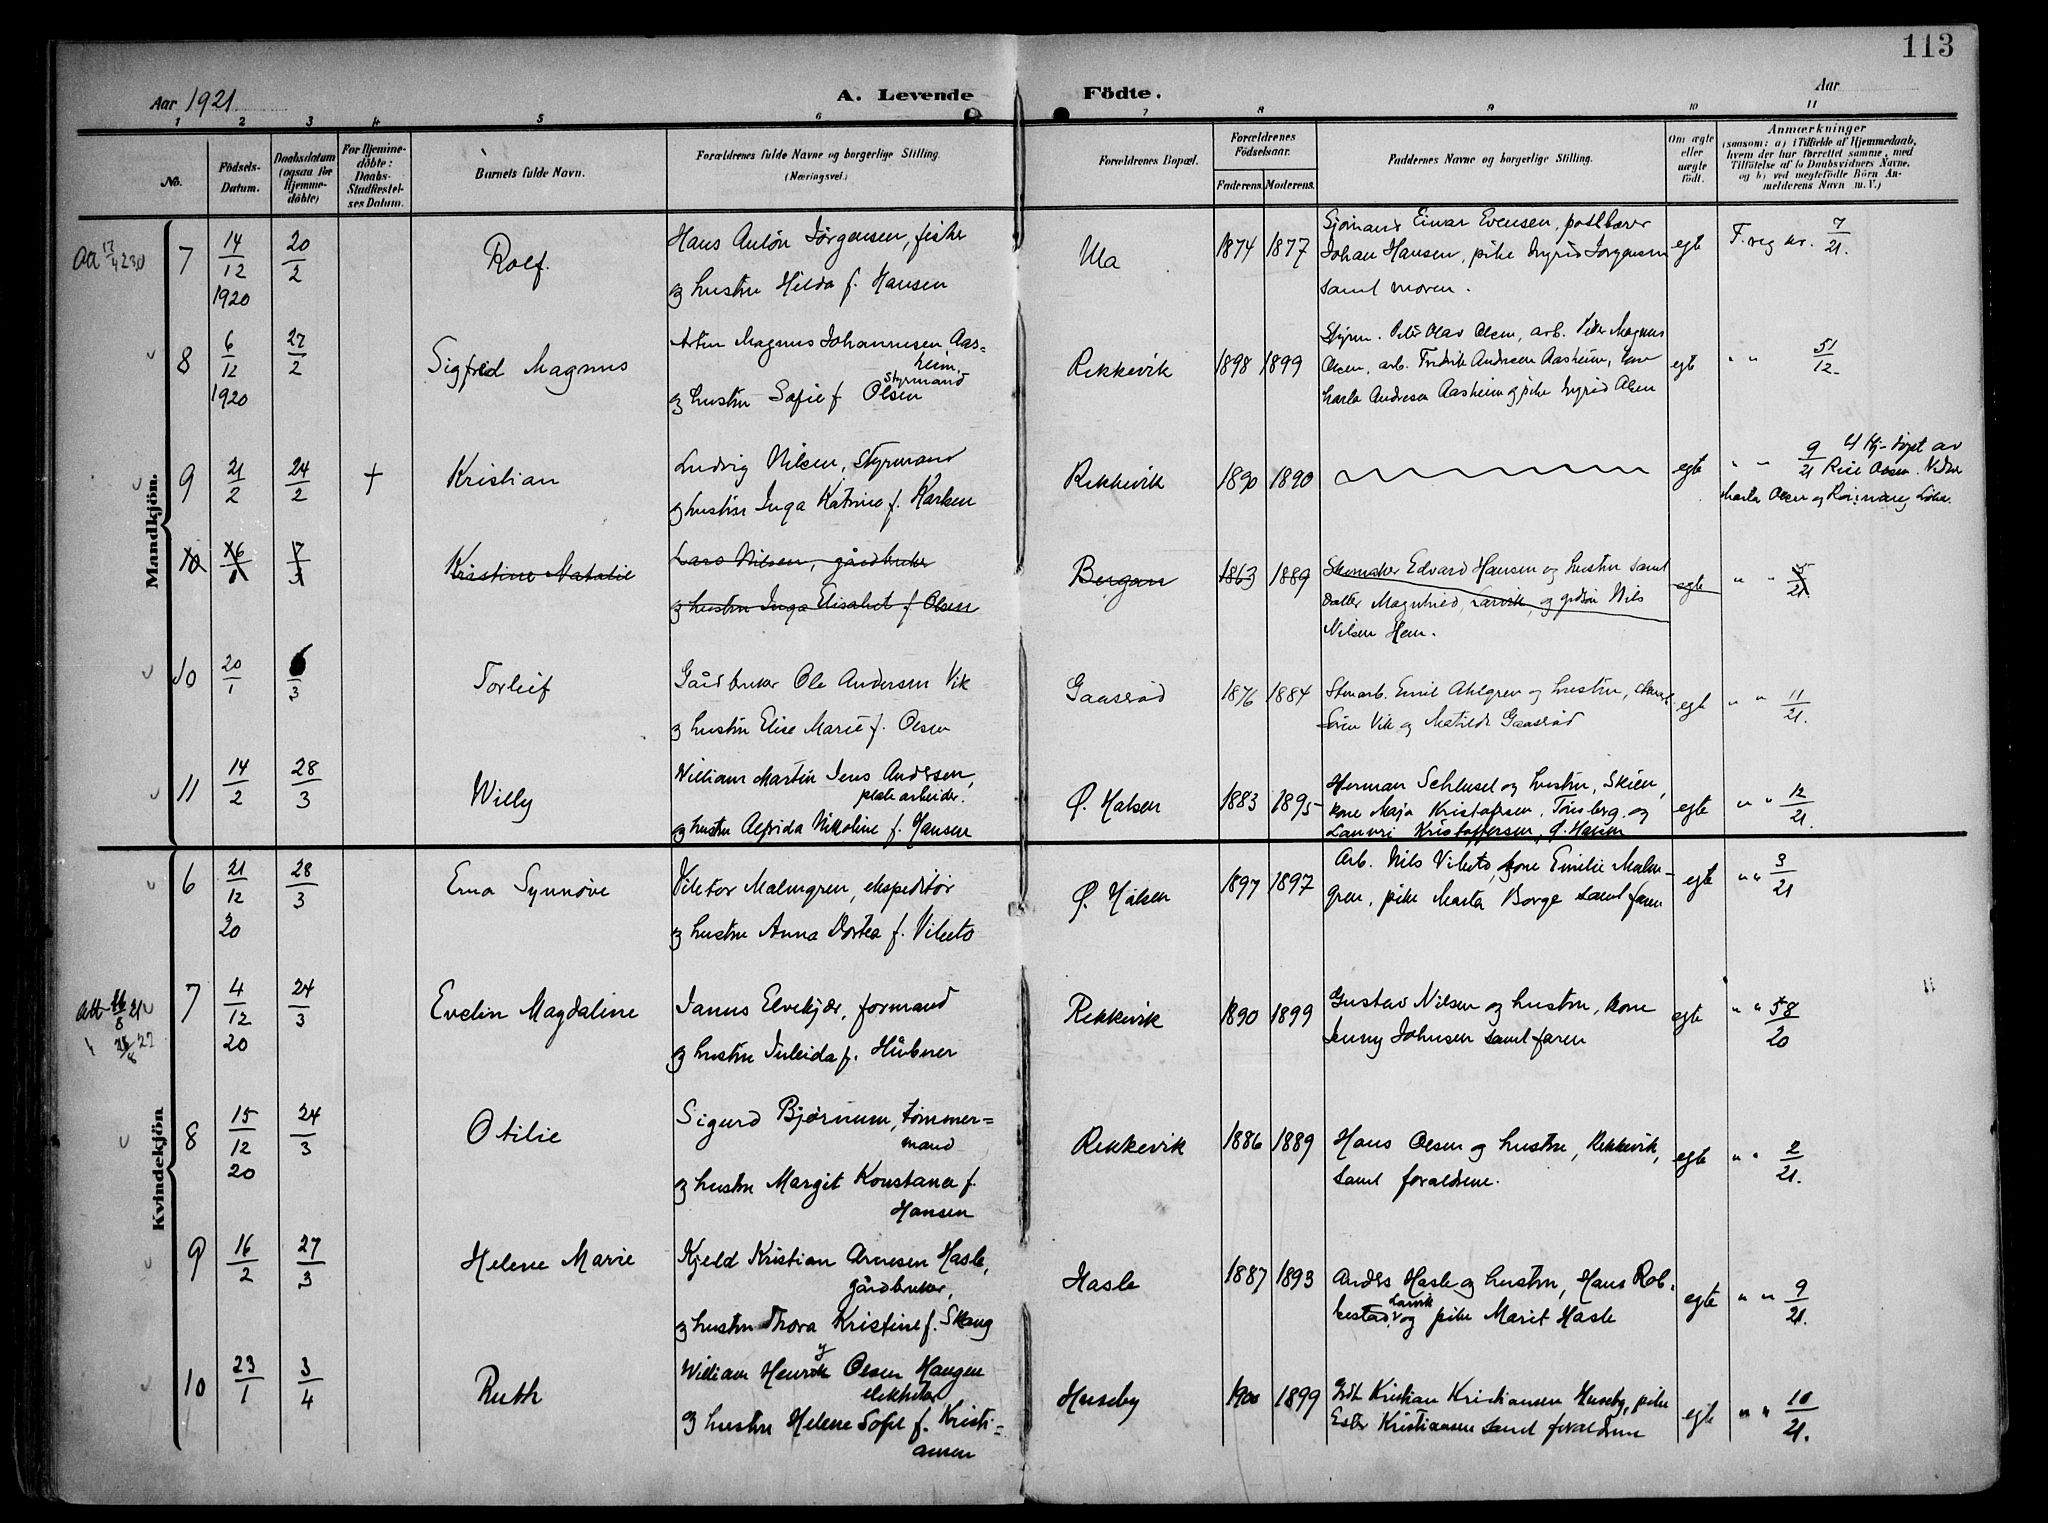 113
Aar 1921.
A. Levende Födte.
Aar
1 2 3 4 5 6 7 8 9 10 11
No.
Födsels-Datum.
Daabsdatum (ogsaa for Hjemme-döbte)
For Hjemme-döbte: Daabs-Stadfæstel-ses Datum.
Barnets fulde Navn.
Forældrenes fulde Navne og borgerlige Stilling. (Næringsvei.)
Forældrenes Bopæl.
Forældrenes Födselsaar.
Faderens. Moderens.
Faddernes Navne og borgerlige Stilling.
Om ægte eller uægte födt.
Anmærkninger
(saasom: a) i Tilfælde af Hjemmedaab, hvem der har forrettet samme, med Tilföielse af to Daabsvidners Navne, og b) ved uegtefödte Börn An-melderens Navn m. V.)
Mandkjön.
7 14/12 1920 20/2 Rolf.
Hans Anton Jørgensen, fisker
og hustru Hilda f. Hansen
Ula 1874 1877
Sjømand Einar Evensen, postbærer
Johan Hansen, pike Ingrid Jørgensen
samt moren.
egte F. reg nr. 7/21.
8 6/12 1920 27/2 Sigfred Magnus
Magnus Johannesen Aas=
heim, styrmand
og hustru Sofie f Olsen
Rekkevik 1898 1899
Olav Olsen, arb. Peder Magnus
Olsen, arb. Fredrik Andresen Aasheim,
Andresen Aasheim og pike Ingrid Olsen
egte " " 51/12-
9 21/2 24/2 + Kristian
Ludvig Nilsen, Styrmand
og hustru Inga Katrine f. Karlsen
Rekkevik 1890 1890
egte " " 9/21 Hj-døpt av
Olsen.
Marta Olsen og
10 Kristine Natalie
Lars Nilsen, gårdbruker
og hustru Inga Elisabet f Olsen
Bergan 1863 1889
Skomaker Edvard Hansen og hustru samt
datter Magnhild, Larvik, og gårdbr Nils
Nilsen Hem.
egte " "
10 20/1 6/3 Torleif
Gårdbruker Ole Andersen Vik
og hustru Elise Marie f. Olsen
Gaasrød 1876 1884
Stenarb. Emil Ahlgren og hustru,
Søren Vik og Matilde Gaasrød
egte " " 11/21.
11 14/2 28/3 Willy
William Martin Jens Andersen,
platearbeider.
og hustru Alfrida Nikoline f. Hansen
Ø. Halsen 1883 1895
Herman Schlüsel og hustru, Skien,
kone Maja Kristofersen, Tønsberg, og
Lauuri Kristoffersen, Ø. Halsen
egte " " 12/21.
Kvindekjön
6 21/12 20 28/3 Erna Synnøve
Viktor Malmgren, ekspeditør
og hustru Anna Dortea f. Vibeto
Ø. Halsen 1897 1897
Arb. Nils Vibeto, kone Emilie Malm-
gren, pike Marta Borge samt faren
egte " " 3/21
7 4/12 20 24/3 Evelin Magdaline
Janus Elvekjær, formand
og hustru f. Hübner
Rekkevik 1890 1899
Gustav Nilsen og hustru, kone
Jenny Johnsen samt faren
egte " " 58/20
8 15/12 20 24/3 Otilie
Sigurd Bjørnum, tømmer=
mand
og hustru Margit Konstance f.
Hansen
Rekkevik 1886 1889
Hans Olsen og hustru, Rekkevik,
samt forældrene.
egte " " 2/21.
9 16/2 27/3 Helene Marie
Kjeld Kristian Arnesen Hasle,
gårdbruker,
og hustru Thora Kristine f. Skaug
Hasle 1887 1893
Anders Hasle og hustru, Hans Rob-
bestad, Larvik og pike Marit Hasle
egte " " 9/21.
10 23/1 3/4 Ruth
William Henry Olsen Haugen
elektriker
og hustru Helene Sofie f. Kristi=
ansen
Huseby 1900 1899
Kristian Kristiansen Huseby, pike
Ester Kristiansen samt forældrene
egte " " 10/21.